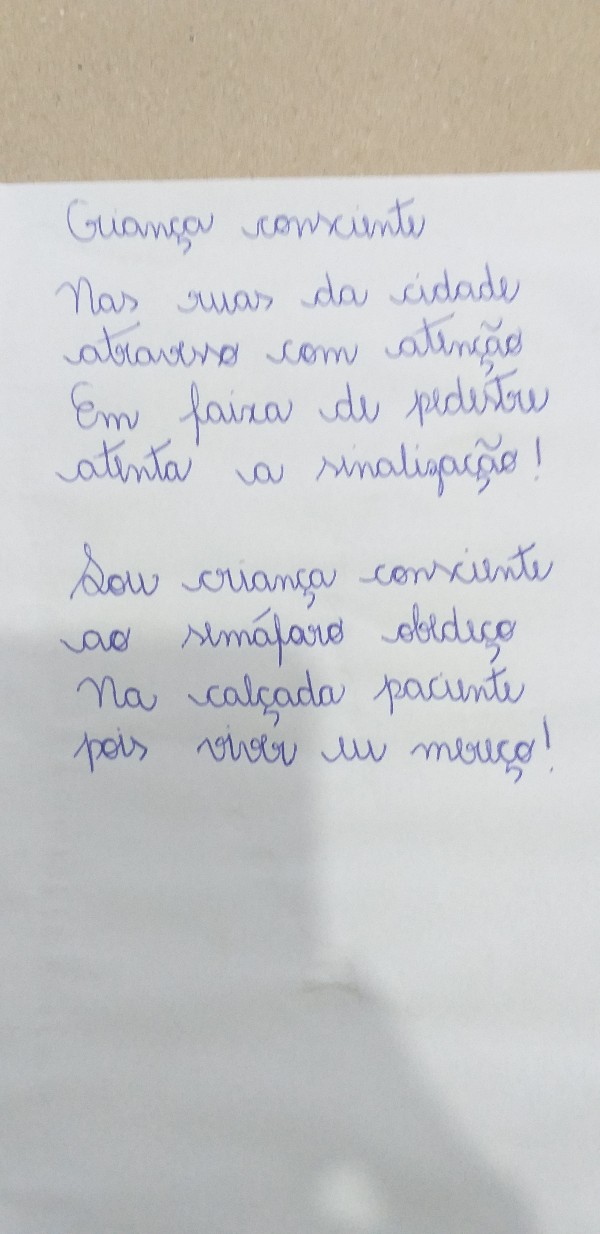 Criança consciente
Nas ruas da cidade
atravesso com atenção
Em faixa de pedestre
atenta a sinalização!
Sou criança consciente
ao semáfaro obedeço
Na calçada paciente
pois viver eu mereço!